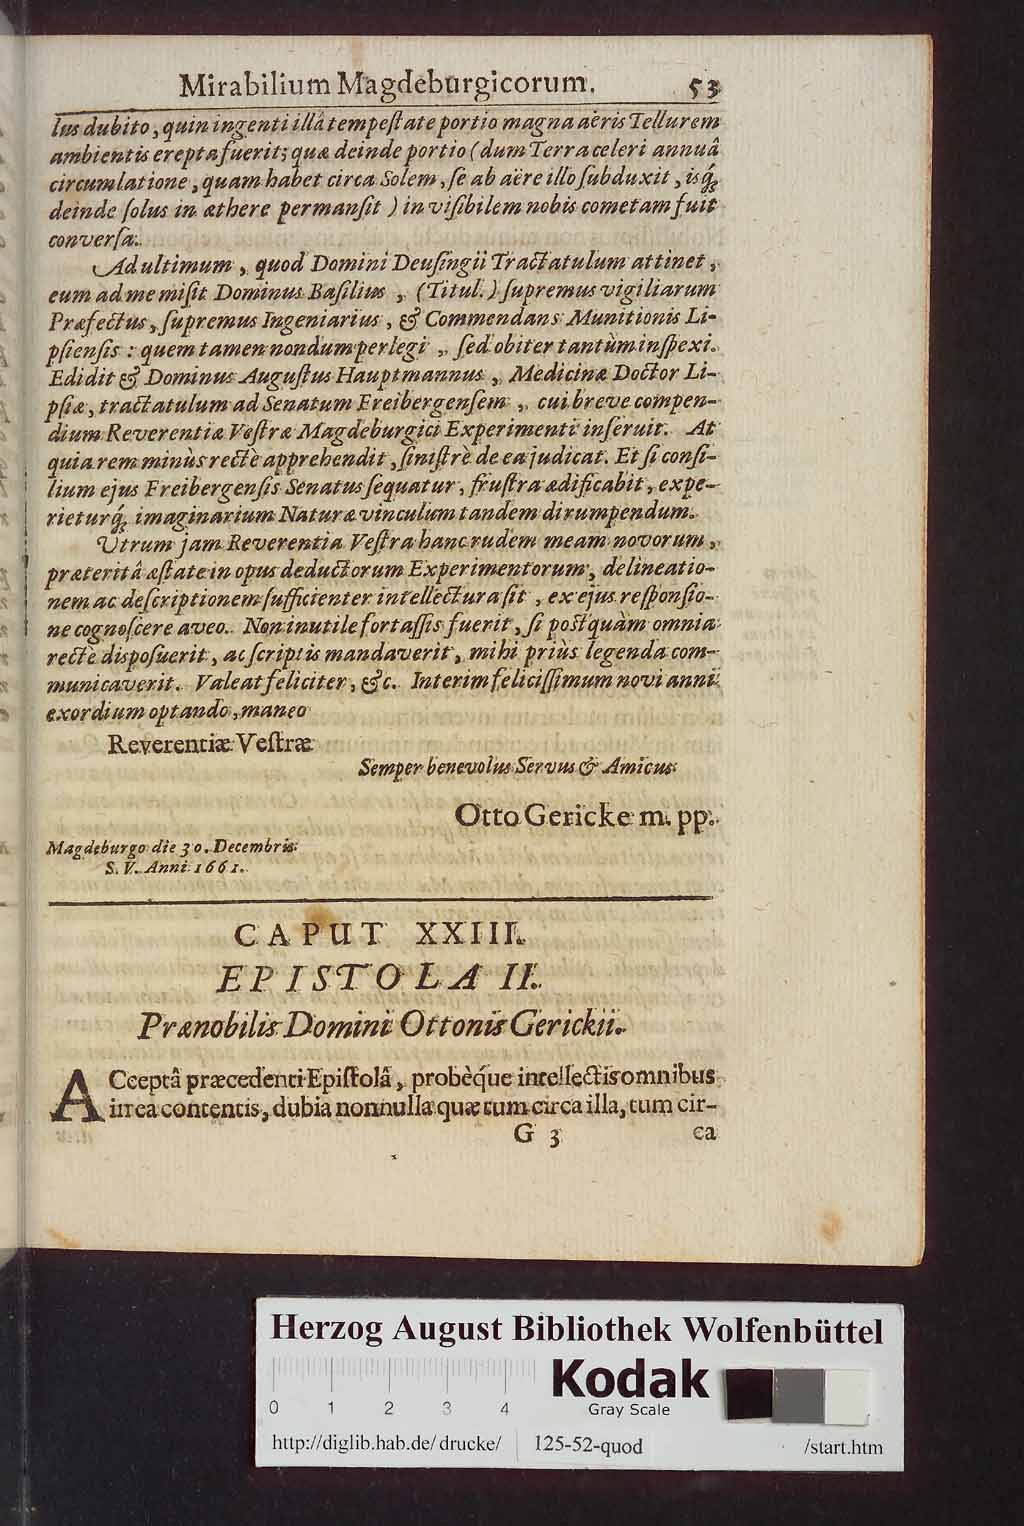 Mirabilium Magdeburgicorum. 53
lus dubito, quin ingenti illâ tempeſtate portio magna aëris Tellurem
ambientis erepta fuerit; quæ deinde portio (dum Terra celeri annuâ
circumlatione, quam habet circa Solem, ſe ab aëre illo ſubduxit, isq́;
deinde ſolus in æthere permanſit) in viſibilem nobis cometam fuit
converſa.
Ad ultimum, quod Domini Deuſingii Tractatulum attinet,
eum ad me miſit Dominus Baſilius, (Titul.) ſupremus vigiliarum
Præfectus, ſupremus Ingeniarius, & Commendans Munitionis Li-
pſienſis: quem tamen nondum perlegi, ſed obiter tantùm inſpexi.
Edidit & Dominus Auguſtus Hauptmannus, Medicinæ Doctor Li-
pſiæ, tractatulum ad Senatum Freibergenſem, cui breve compen-
dium Reverentiæ Veſtræ Magdeburgici Experimenti inſeruit. At
quia rem minùs rectè apprehendit, ſiniſtrè de ea judicat. Et ſi conſi-
lium ejus Freibergenſis Senatus ſequatur, fruſtra ædificabit, expe-
rieturq́; imaginarium Naturæ vinculum tandem dirumpendum.
Utrum jam Reverentia Veſtra hanc rudem meam novorum,
præteritâ æſtate in opus deductorum Experimentorum, delineatio-
nem ac deſcriptionem ſufficienter intellectura ſit, ex ejus reſponſio-
ne cognoſcere aveo. Non inutile fortaſſis fuerit, ſi poſtquàm omnia
rectè diſpoſuerit, ac ſcriptis mandaverit, mihi priùs legenda com-
municaverit. Valeat feliciter, &c. Interim feliciſſimum novi anni
exordium optando, maneo
Reverentiæ Veſtræ
Semper benevolus Servus & Amicus
Otto Gericke m. pp.
Magdeburgo die 30. Decembris
S. V. Anni 1661.
CAPUT XXIII.
EPISTOLA II.
Prænobilis Domini Ottonis Gerickii.
ACceptâ præcedenti Epiſtolâ, probèq́ue intellectis omnibus
in ea contentis, dubia nonnulla quæ tum circa illa, tum cir-
G 3 ca
Herzog August Bibliothek Wolfenbüttel
Kodak
0 1 2 3 4 Gray Scale
http://diglib.hab.de/drucke/ 125-52-quod /start.htm